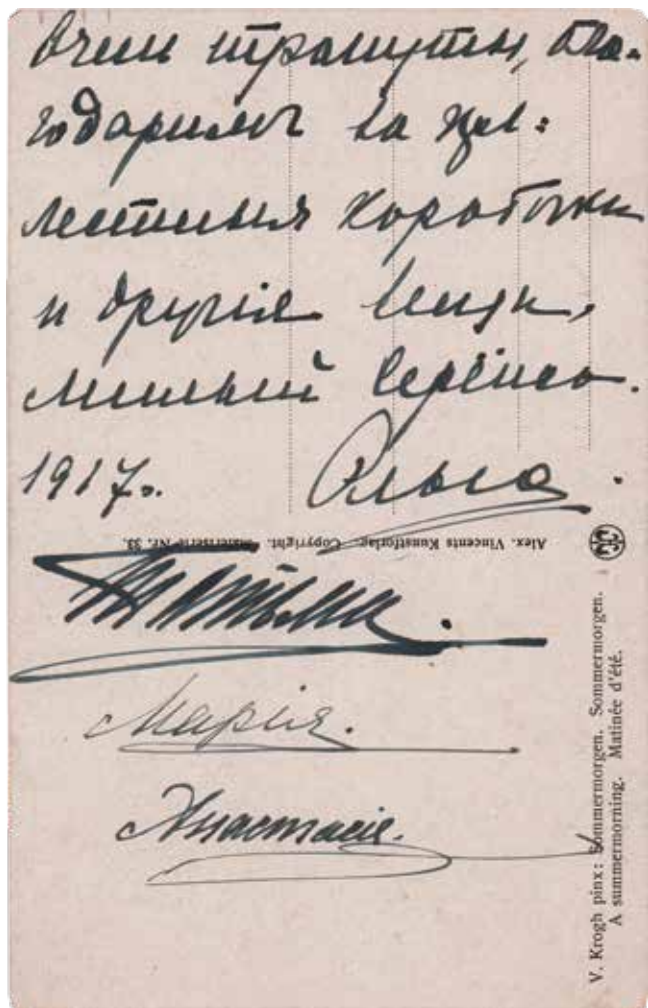 Очень тронуты, бла-
годаримъ за пре=
лестныя коробочки
и другія вещи,
милый
1917г. Ольга.
Alex. Vincents Kunstforlag. Copyright. Maleriserie Nr. 33.
Татьяна.
Марія.
Анастасія.
V. Krogh pinx: Sommermorgen. Sommermorgen.
A summermorning. Matinée d'été.